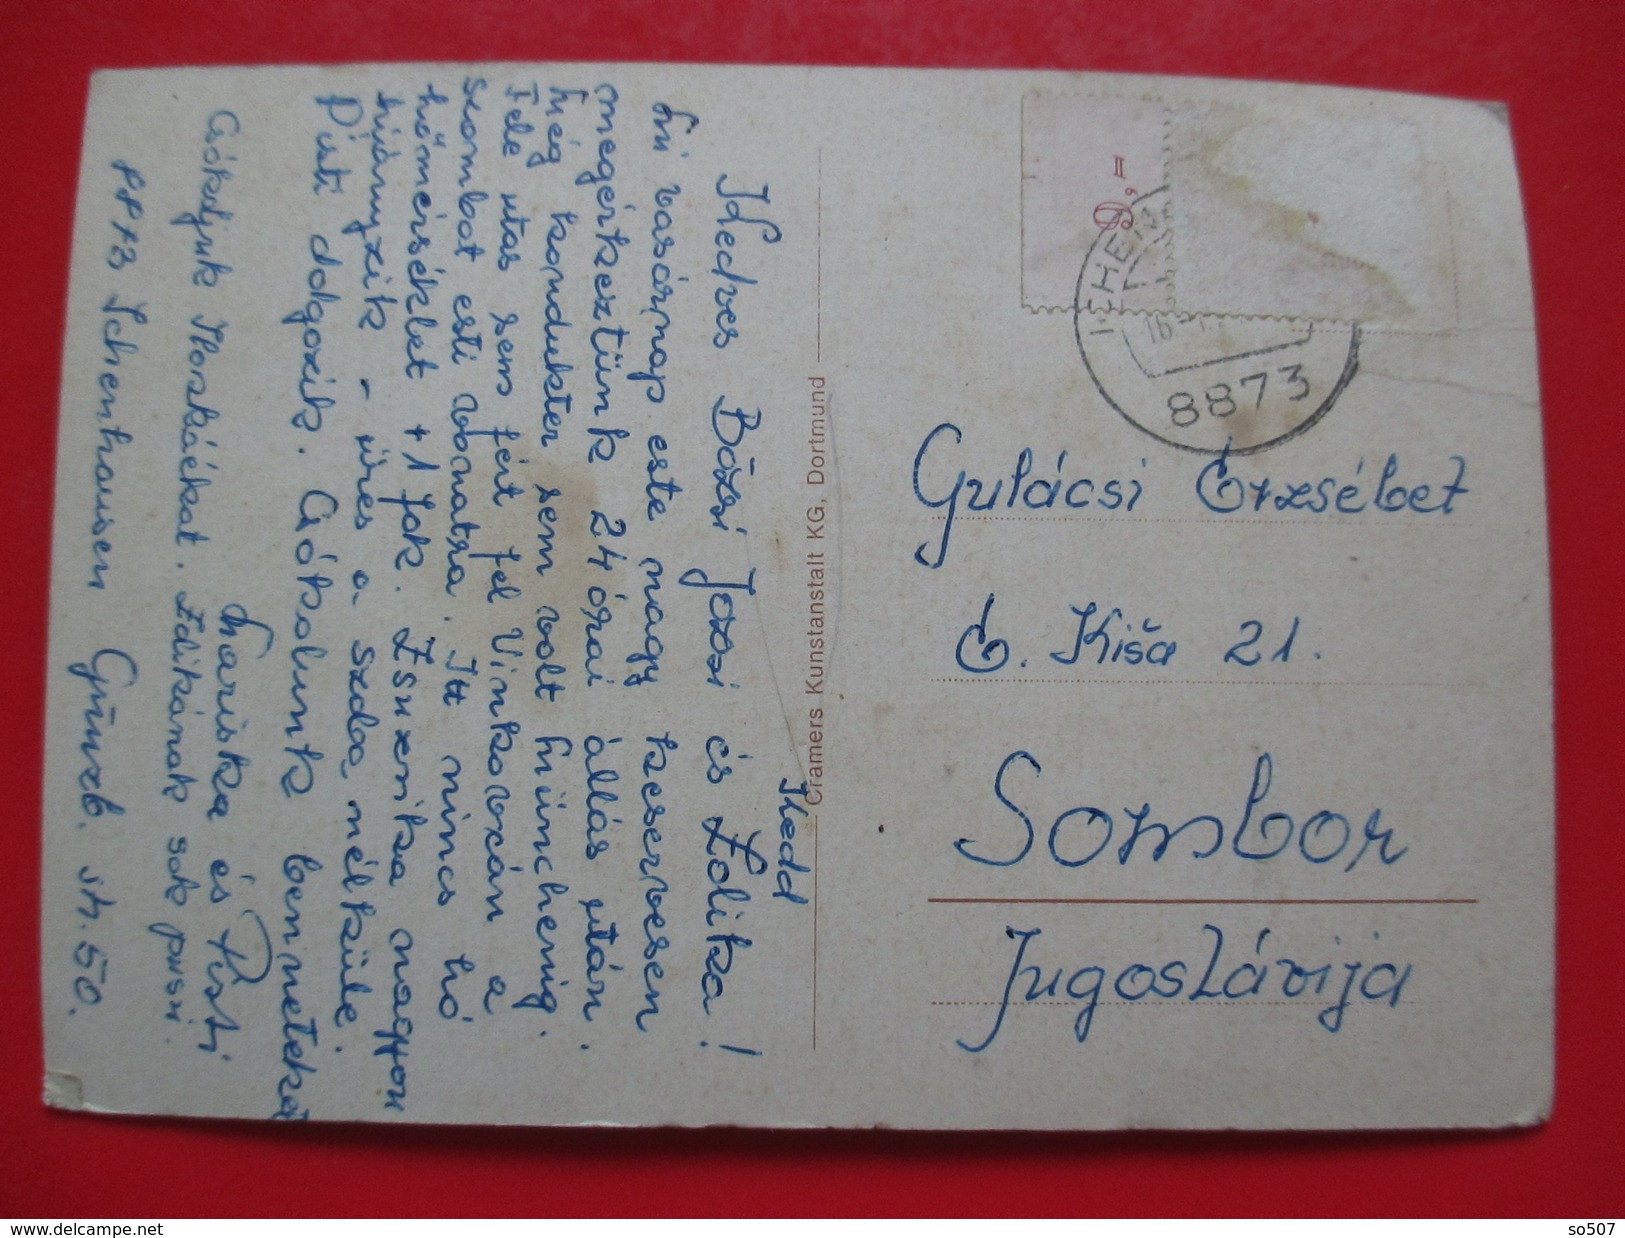 Kedd
Kedves Bözsi Jozsi és Zolika!
Mi vasárnap este nagy keservesen
megérkeztünk 24 órai állás után.
Még kondukter sem volt Münchenig.
Fele utas sem fért fel Vinkovcán a
szombat esti vonatra. Itt nincs hó
hőmérséklet +1 fok. Zsuzsika nagyon
hiányzik - üres a szoba nélküle.
Pisti dolgozik. Csókolunk benneteket
Mariska és Pisti
Csókoljuk Noskáékat. Edikának sok puszi.
8873 Ichenhausen Günzb. str. 50.
Cramers Kunstanstalt KG, Dortmund
9,-
ICHEN
16
8873
Gulácsi Erzsébet
E. Kiša 21.
Sombor
Jugoszlávija
www.delcampe.net
so507